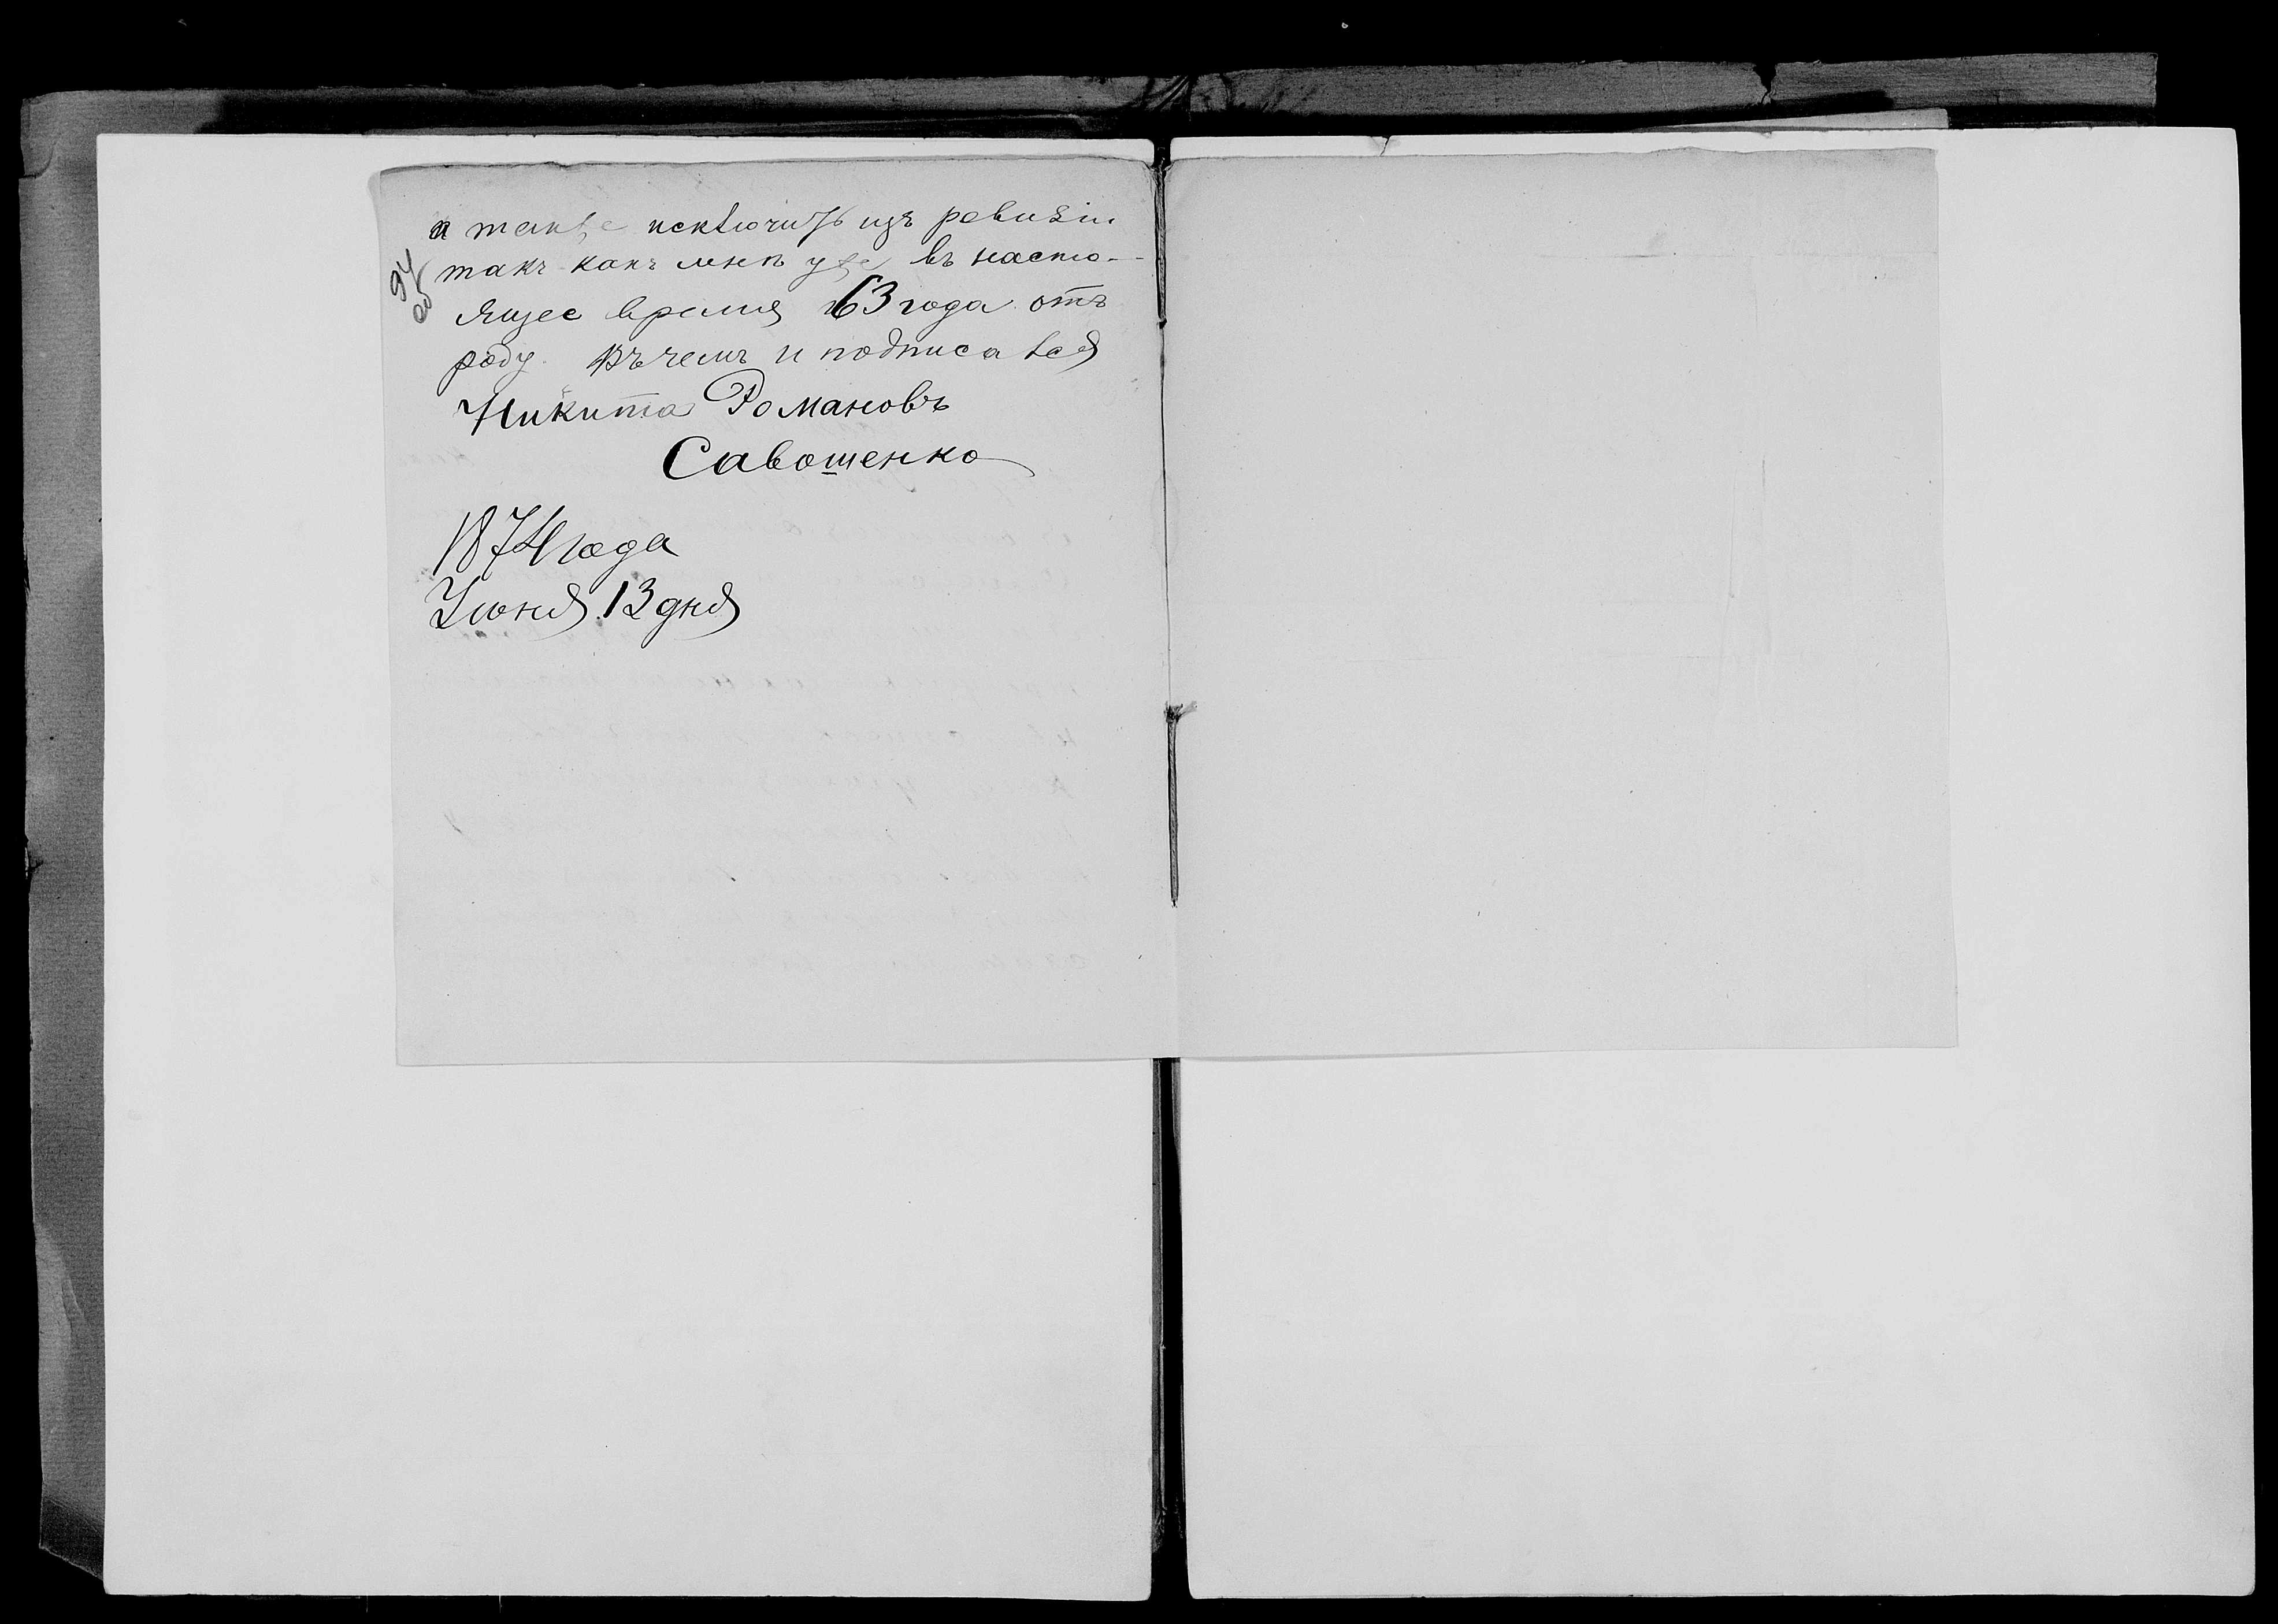 а также исключить изъ ревизіи
такъ какъ мнѣ уже въ насто-
ящее время 63 года отъ
роду. Въ чемъ и подписался
Никита Романовъ
Савошенко
1874 года
Июня 13 дня
94
об